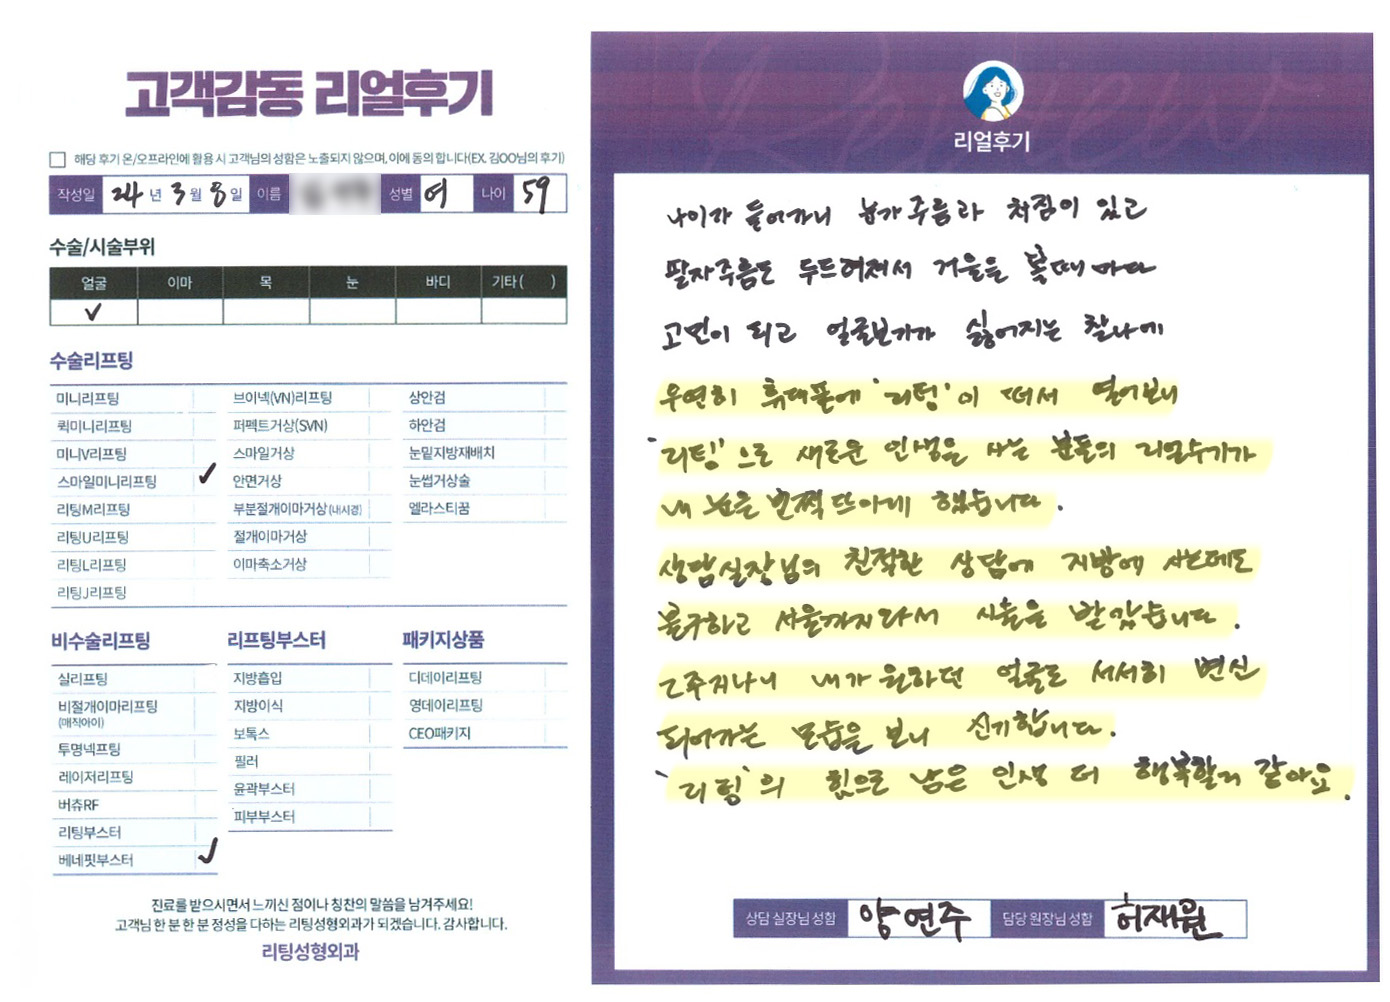 고객감동 리얼후기
해당 후기 온/오프라인에 활용 시 고객님의 성함은 노출되지 않으며, 이에 동의 합니다(EX. 김OO님의 후기)
작성일 24년 3월 8일 이름 성별 여 나이 59
수술/시술부위
얼굴 이마 목 눈 바디 기타( )
✓
수술리프팅
미니리프팅 브이넥(VN)리프팅 상안검
퀵미니리프팅 퍼펙트거상(SVN) 하안검
미니V리프팅 스마일거상 눈밑지방재배치
스마일미니리프팅 ✓ 안면거상 눈썹거상술
리팅M리프팅 부분절개이마거상(내시경) 엘라스티꿈
리팅U리프팅 절개이마거상
리팅L리프팅 이마축소거상
리팅J리프팅
비수술리프팅 리프팅부스터 패키지상품
실리프팅 지방흡입 디데이리프팅
비절개이마리프팅 지방이식 영데이리프팅
(매직아이) 보톡스 CEO패키지
투명넥프팅 필러
레이저리프팅 윤곽부스터
버츄RF 피부부스터
리팅부스터
베네핏부스터 ✓
진료를 받으시면서 느끼신 점이나 칭찬의 말씀을 남겨주세요!
고객님 한 분 한 분 정성을 다하는 리팅성형외과가 되겠습니다. 감사합니다.
리팅성형외과
Review
리얼후기
나이가 들어가니 눈가주름과 처짐이 있고
팔자주름도 두드러져서 거울을 볼때마다
고민이 되고 얼굴보기가 싫어지는 찰나에
우연히 휴대폰에 '리팅'이 떠서 열어보니
'리팅'으로 새로운 인생을 사는 분들의 리얼후기가
내 눈을 번쩍 뜨이게 했습니다.
상담실장님의 친절한 상담에 지방에 사는데도
불구하고 서울까지와서 시술을 받았습니다.
2주지나니 내가 원하던 얼굴로 서서히 변신
되어가는 모습을 보니 신기합니다.
'리팅'의 힘으로 남은 인생 더 행복할거 같아요.
상담 실장님 성함 양연주 담당 원장님 성함 허재원